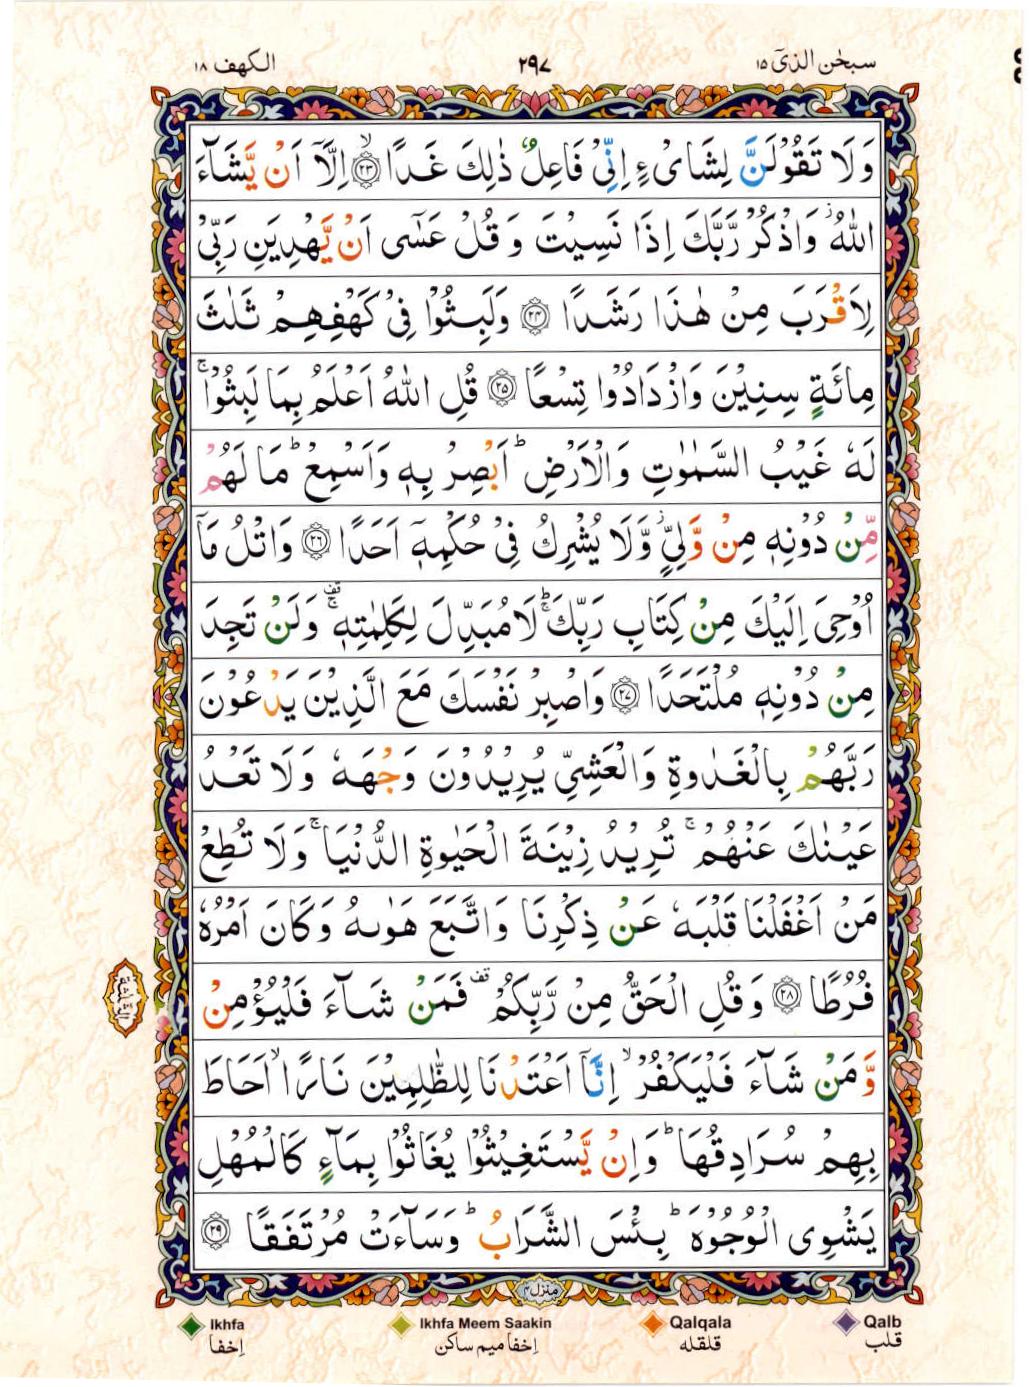 سبحٰن الذیٓ ۱۵
۲۹۷
الکھف ۱۸
وَلَا تَقُوْلَنَّ لِشَایْءٍ اِنِّیْ فَاعِلٌ ذٰلِكَ غَدًا ۙ﴿۲۳﴾ اِلَّاۤ اَنْ یَّشَآءَ
اللّٰهُ ؗ وَاذْكُرْ رَّبَّكَ اِذَا نَسِیْتَ وَ قُلْ عَسٰۤی اَنْ یَّهْدِیَنِ رَبِّیْ
لِاَقْرَبَ مِنْ هٰذَا رَشَدًا ﴿۲۴﴾ وَلَبِثُوْا فِیْ كَهْفِهِمْ ثَلٰثَ
مِائَةٍ سِنِیْنَ وَازْدَادُوْا تِسْعًا ﴿۲۵﴾ قُلِ اللّٰهُ اَعْلَمُ بِمَا لَبِثُوْا ۚ
لَهٗ غَیْبُ السَّمٰوٰتِ وَالْاَرْضِ ؕ اَبْصِرْ بِهٖ وَاَسْمِعْ ؕ مَا لَهُمْ
مِّنْ دُوْنِهٖ مِنْ وَّلِیٍّ ؗ وَّلَا یُشْرِكُ فِیْ حُكْمِهٖۤ اَحَدًا ﴿۲۶﴾ وَاتْلُ مَاۤ
اُوْحِیَ اِلَیْكَ مِنْ كِتَابِ رَبِّكَ ؕۚ لَا مُبَدِّلَ لِكَلِمٰتِهٖ ۚقف وَلَنْ تَجِدَ
مِنْ دُوْنِهٖ مُلْتَحَدًا ﴿۲۷﴾ وَاصْبِرْ نَفْسَكَ مَعَ الَّذِیْنَ یَدْعُوْنَ
رَبَّهُمْ بِالْغَدٰوةِ وَالْعَشِیِّ یُرِیْدُوْنَ وَجْهَهٗ وَلَا تَعْدُ
عَیْنٰكَ عَنْهُمْ ۚ تُرِیْدُ زِیْنَةَ الْحَیٰوةِ الدُّنْیَا ۚ وَلَا تُطِعْ
مَنْ اَغْفَلْنَا قَلْبَهٗ عَنْ ذِكْرِنَا وَاتَّبَعَ هَوٰىهُ وَكَانَ اَمْرُهٗ
فُرُطًا ﴿۲۸﴾ وَقُلِ الْحَقُّ مِنْ رَّبِّكُمْ قف فَمَنْ شَآءَ فَلْیُؤْمِنْ
وَّمَنْ شَآءَ فَلْیَكْفُرْ ۙ اِنَّاۤ اَعْتَدْنَا لِلظّٰلِمِیْنَ نَارًا ۙ اَحَاطَ
بِهِمْ سُرَادِقُهَا ؕ وَاِنْ یَّسْتَغِیْثُوْا یُغَاثُوْا بِمَآءٍ كَالْمُهْلِ
یَشْوِی الْوُجُوْهَ ؕ بِئْسَ الشَّرَابُ ؕ وَسَآءَتْ مُرْتَفَقًا ﴿۲۹﴾
الثلثة
منزل ۴
Ikhfa
Ikhfa Meem Saakin
Qalqala
Qalb
اِخفا
اِخفا میم ساکن
قلقله
قلب